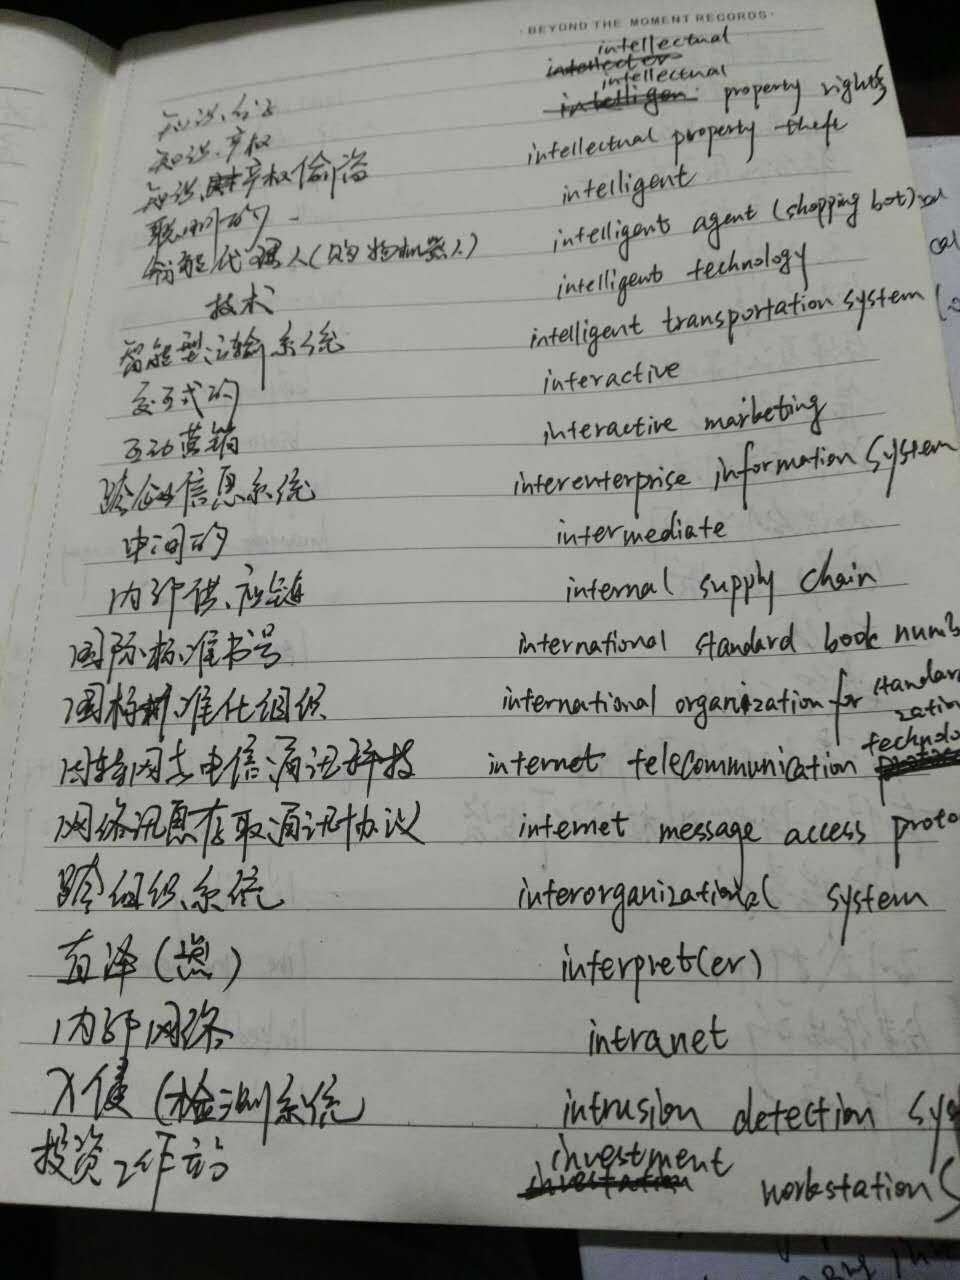 BEYOND THE MOMENT RECORDS
intellectual
知识产权 intellectual property rights
知识产权偷盗 intellectual property theft
聪明的 intelligent
智能代理人(购物机器人) intelligent agent (shopping bot)
技术 intelligent technology
智能型运输系统 intelligent transportation system (
交互式的 interactive
互动营销 interactive marketing
跨企业信息系统 interenterprise information system
中间的 intermediate
内部供应链 internal supply chain
国际标准书号 international standard book numb
国标标准化组织 international organization for standar
zation
因特网与电信通讯科技 internet telecommunication technolo
网络讯息存取通讯协议 internet message access proto
跨组织系统 interorganizational system
直译(器) interpret(er)
内部网络 intranet
入侵(检测系统 intrusion detection sys
投资工作站 investment workstation(